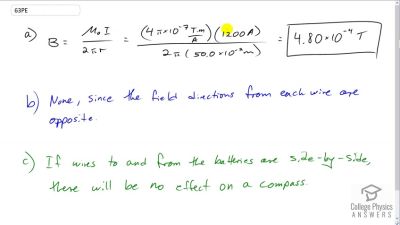 63PE
a) B = μ₀ I / 2πr = (4π×10⁻⁷ T·m/A)(1200A) / 2π(50.0×10⁻²m) = 4.80×10⁻⁴ T
b) None, since the field directions from each wire are
opposite.
c) If wires to and from the batteries are side-by-side,
there will be no effect on a compass.
College Physics
ANSWERS